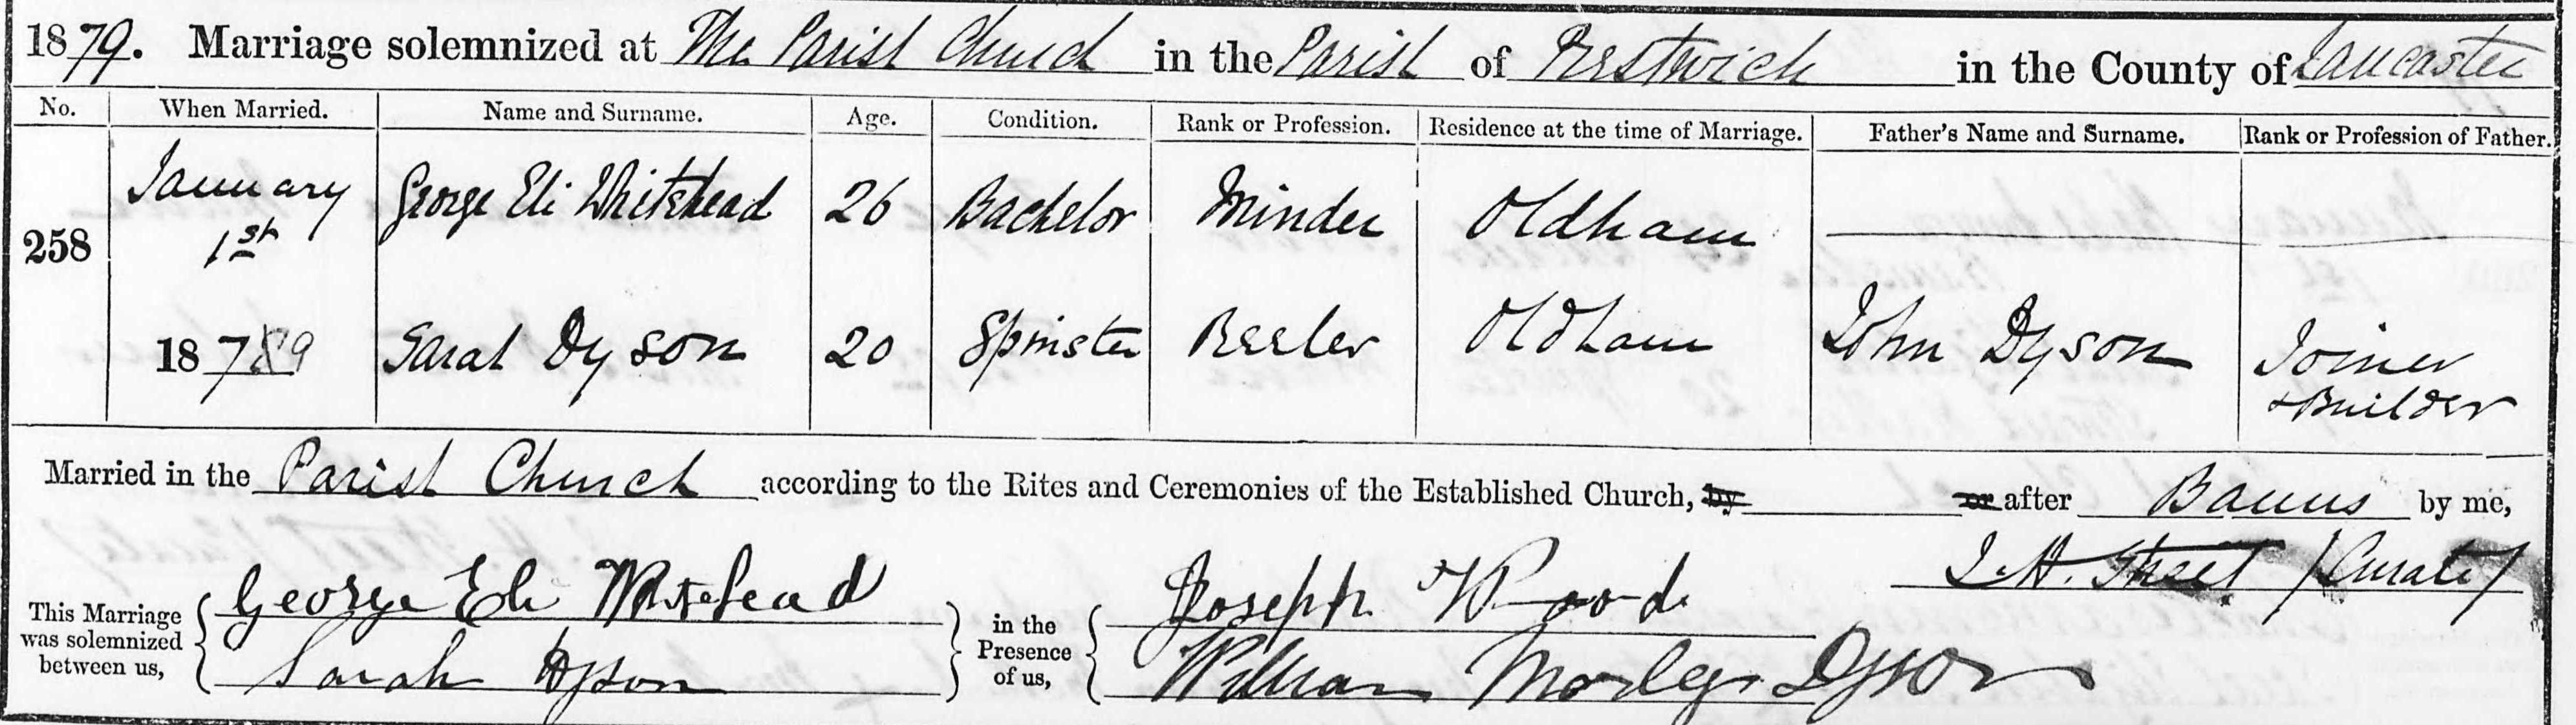 1879. Marriage solemnized at The Parish Church in the Parish of Prestwich in the County of Lancaster
No. When Married. Name and Surname. Age. Condition. Rank or Profession. Residence at the time of Marriage. Father's Name and Surname. Rank or Profession of Father.
258
January
1st
1879
George Eli Whitehead 26 Bachelor Minder Oldham
Sarah Dyson 20 Spinster Reeler Oldham John Dyson Joiner
+ Builder
Married in the Parish Church according to the Rites and Ceremonies of the Established Church, by or after Banns by me,
This Marriage
was solemnized
between us,
George Eli Whitehead
Sarah Dyson
in the
Presence
of us,
Joseph Wood
William Morley Dyson
J. H. Street / Curate /